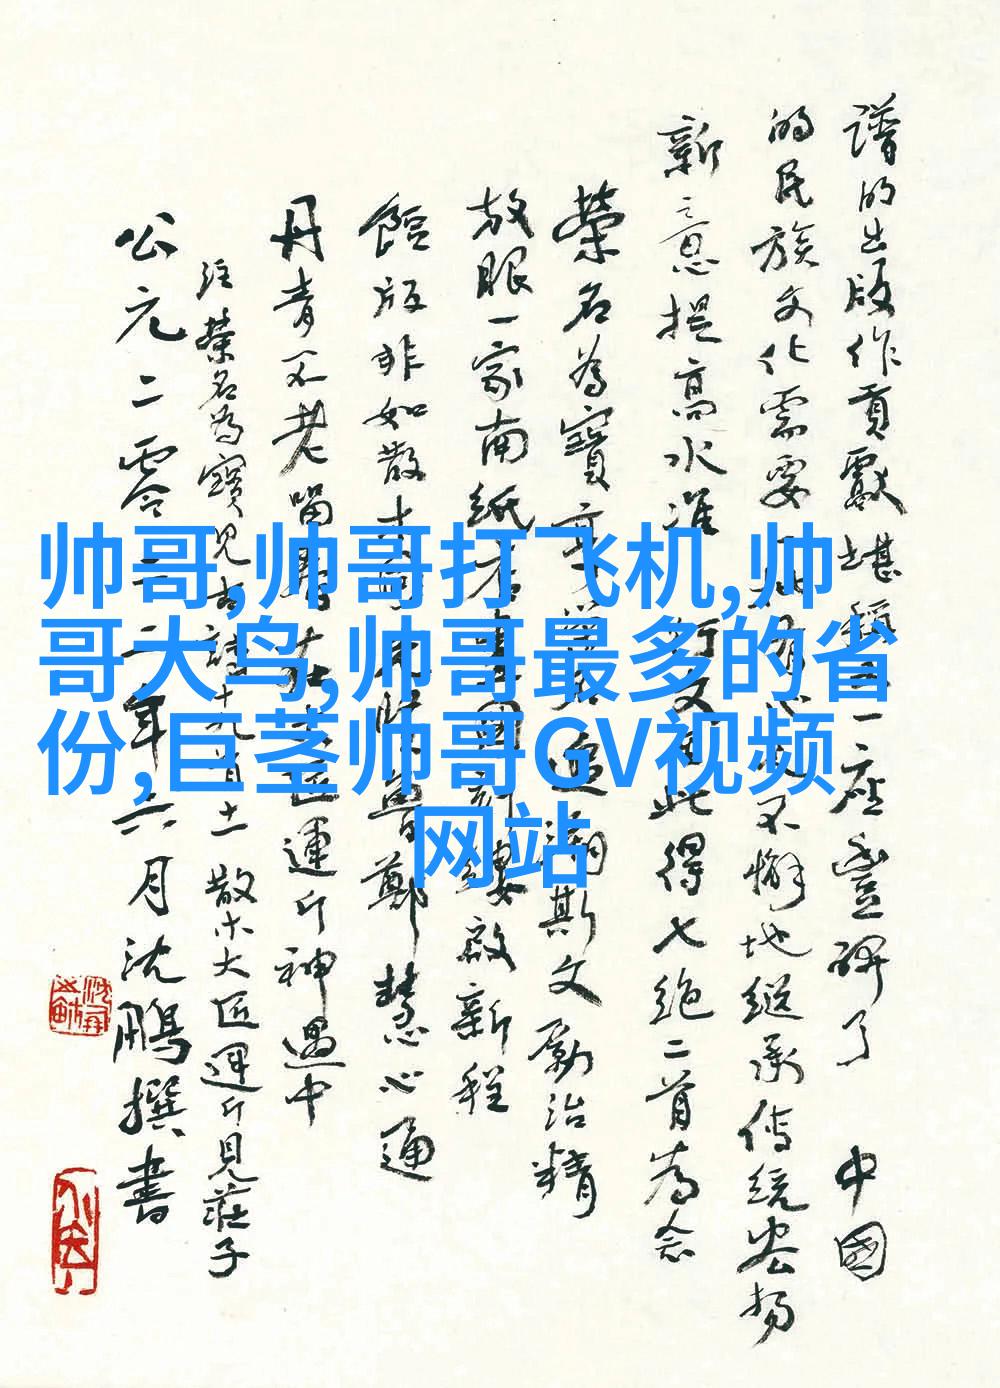 谱的出版作贡献堪称一座丰碑了 中国
的民族文化需要 不懈地继承传统发扬
新意提高水准 此得七绝二首为念
荣名为宝 追溯斯文励治精
放眼一家南纸 启新程
馆版非如散木 郑慧心通
丹青不老留 运斤神遇中
注荣名为宝见古诗十九首 散木大匠运斤见庄子
公元二零二二年六月沈鹏撰书
帅哥,帅哥打飞机,帅
哥大鸟,帅哥最多的省
份,巨茎帅哥GV视频
网站